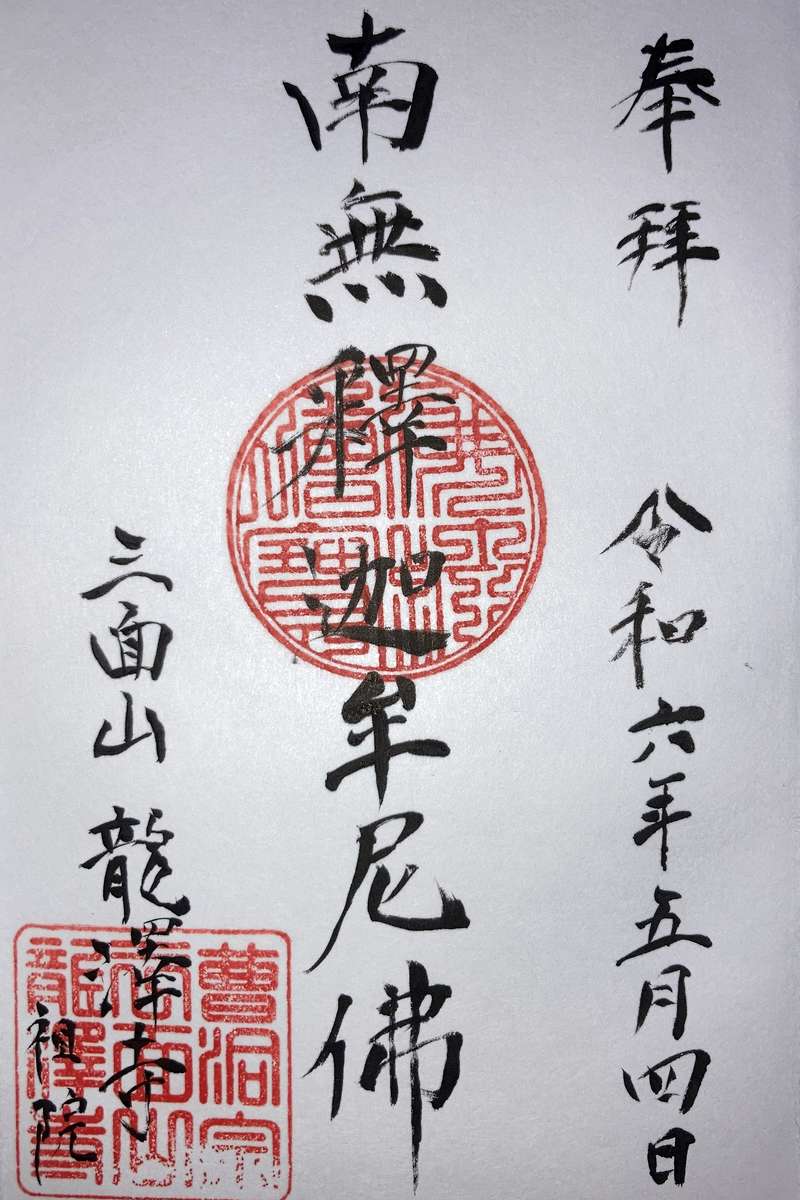 奉拜 令和六年五月四日
南無釋迦牟尼佛
三面山 龍澤寺
祖院
佛法僧寶
曹洞宗
三面山
龍澤寺